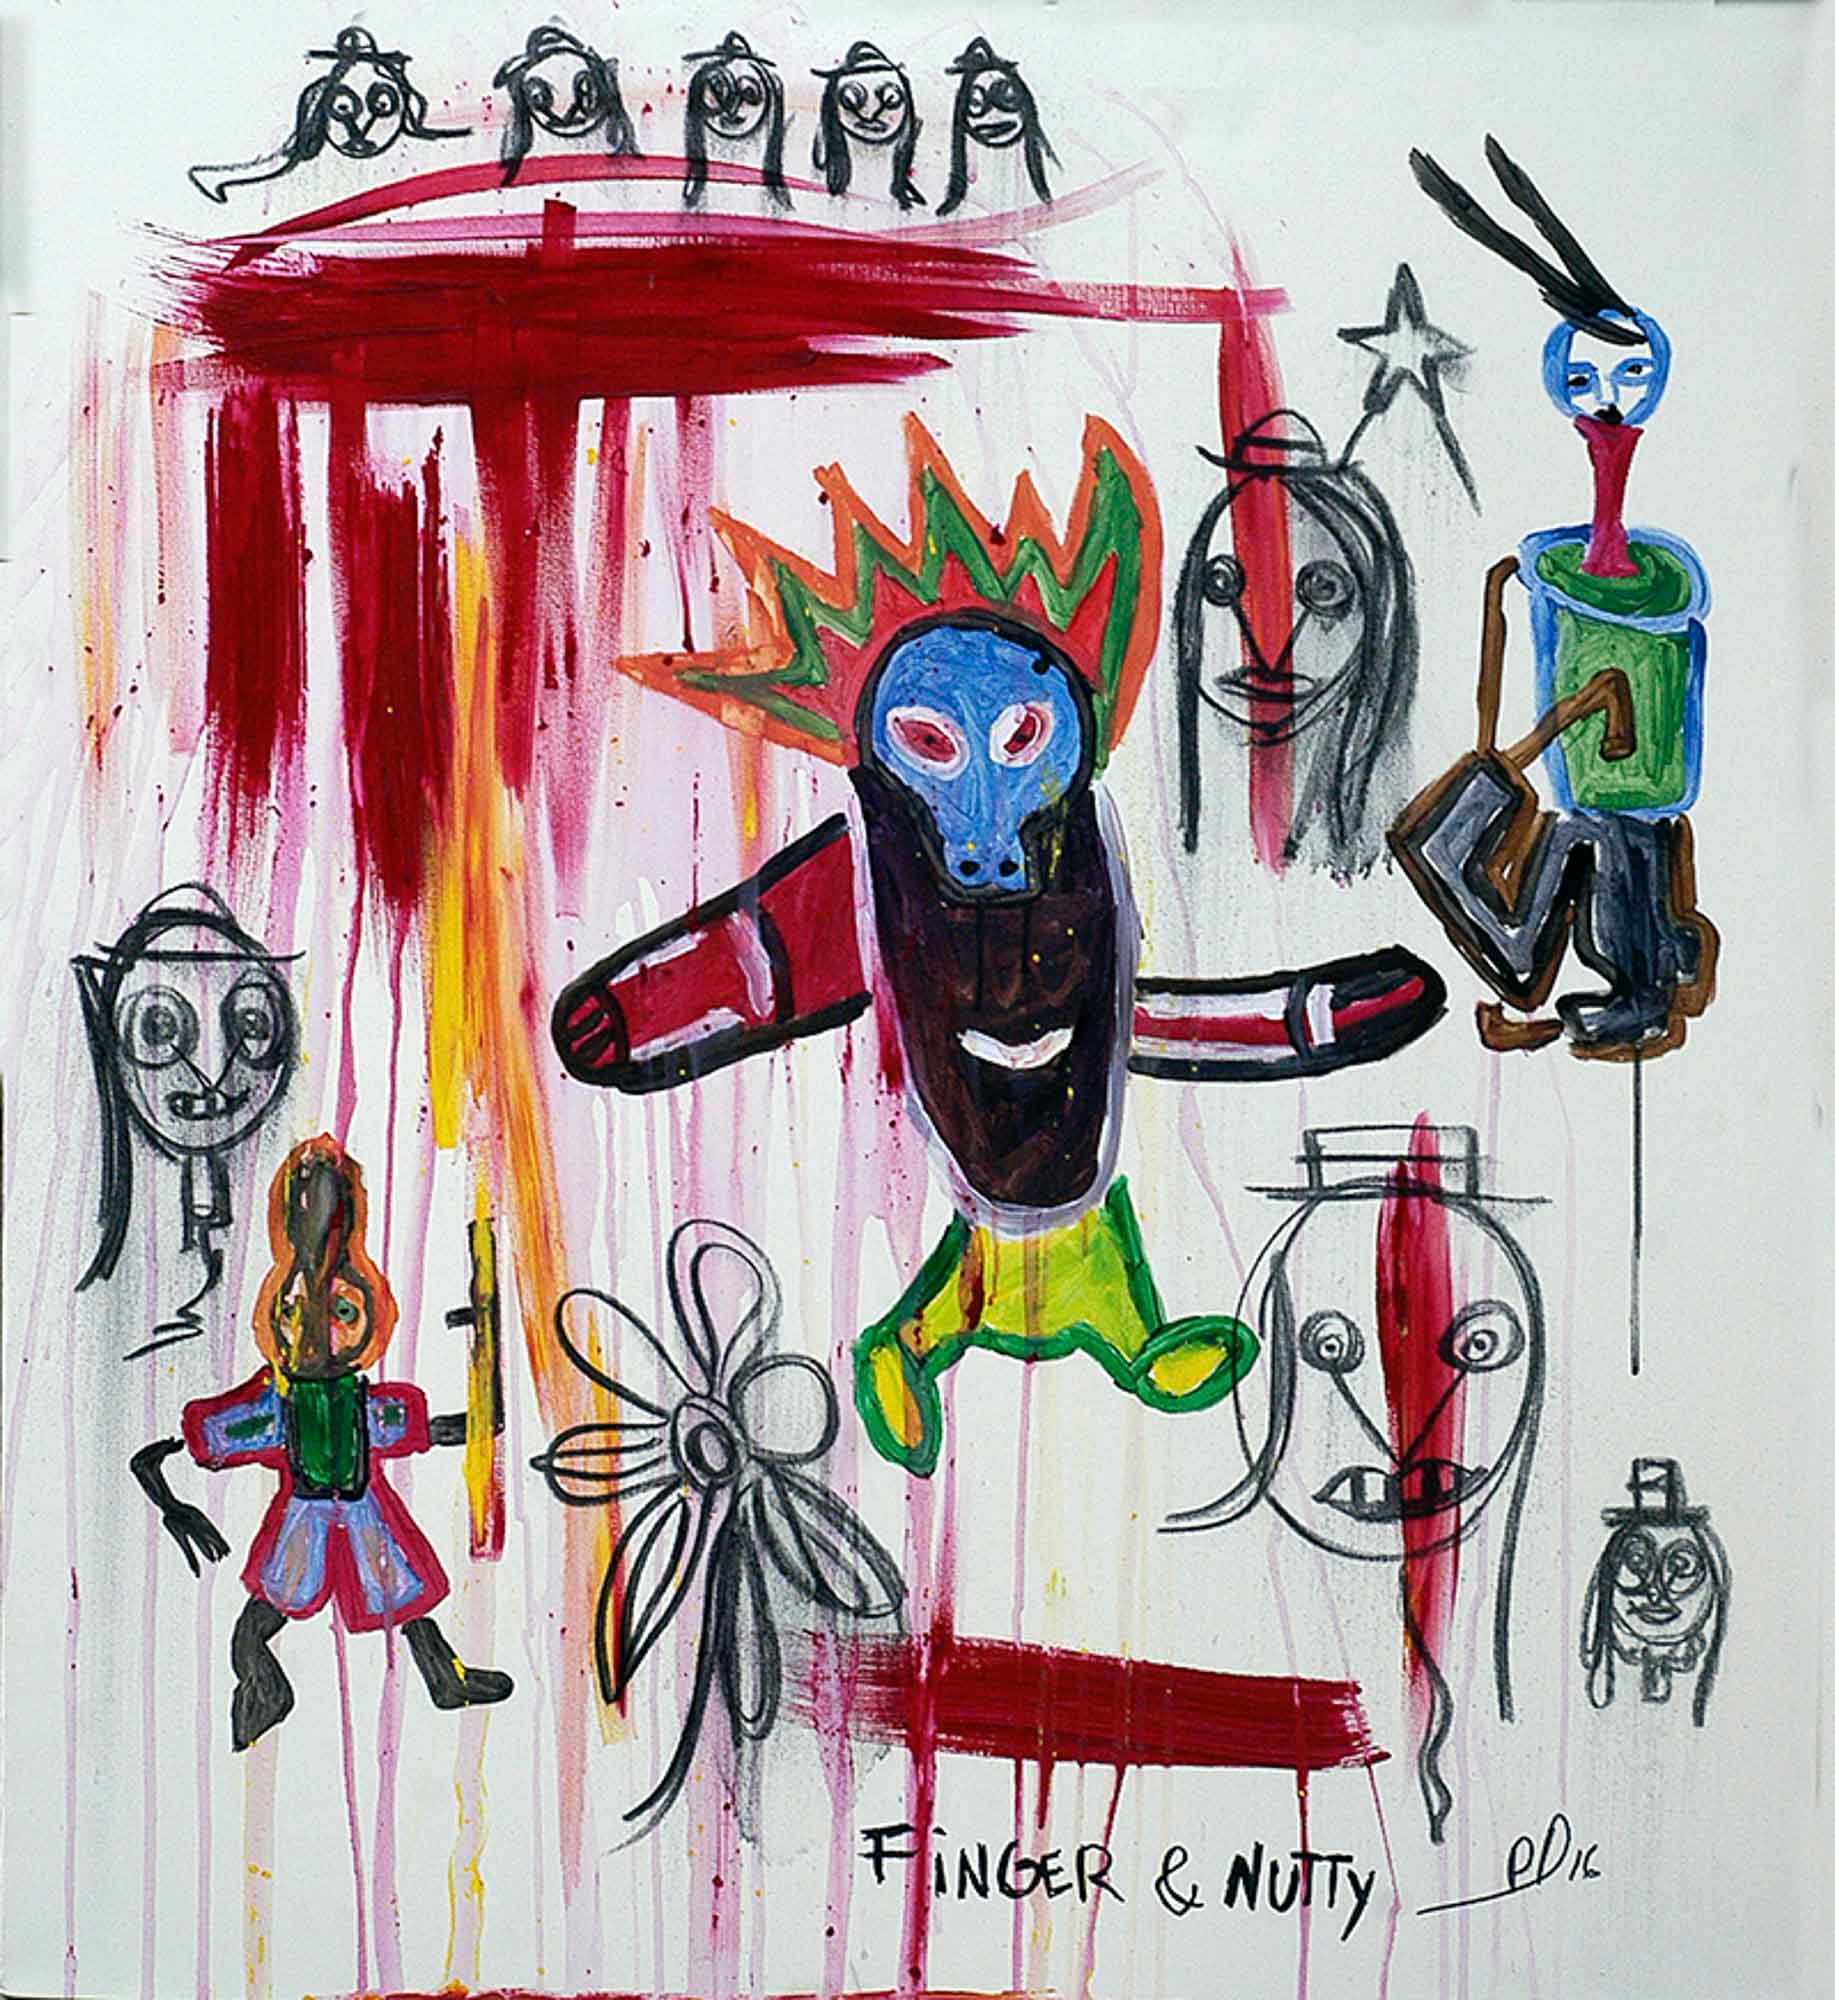 FINGER & NUTTY
PD 16